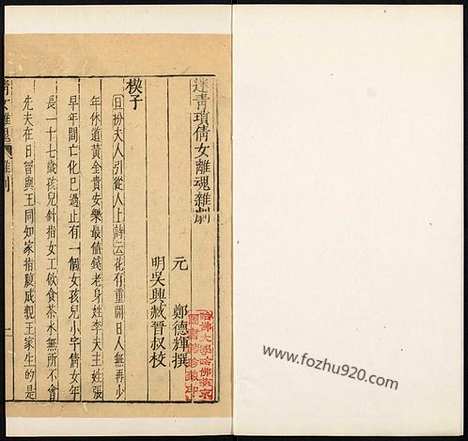 迷青瑣倩女離魂雜劇
元 鄭德輝撰
明吳興臧晉叔校
楔子
旦扮夫人引從人上詩云花有重開日人無再少
年休道黃金貴安樂最值錢老身姓李夫主姓張
早年間亡化已過止有一個女孩兒小字倩女年
長一十七歲孩兒針指女工飲食茶水無所不會
先夫在日曾與王同知家指腹成親王家生的是
倩女離魂 雜劇 一
www.fozhu920.com